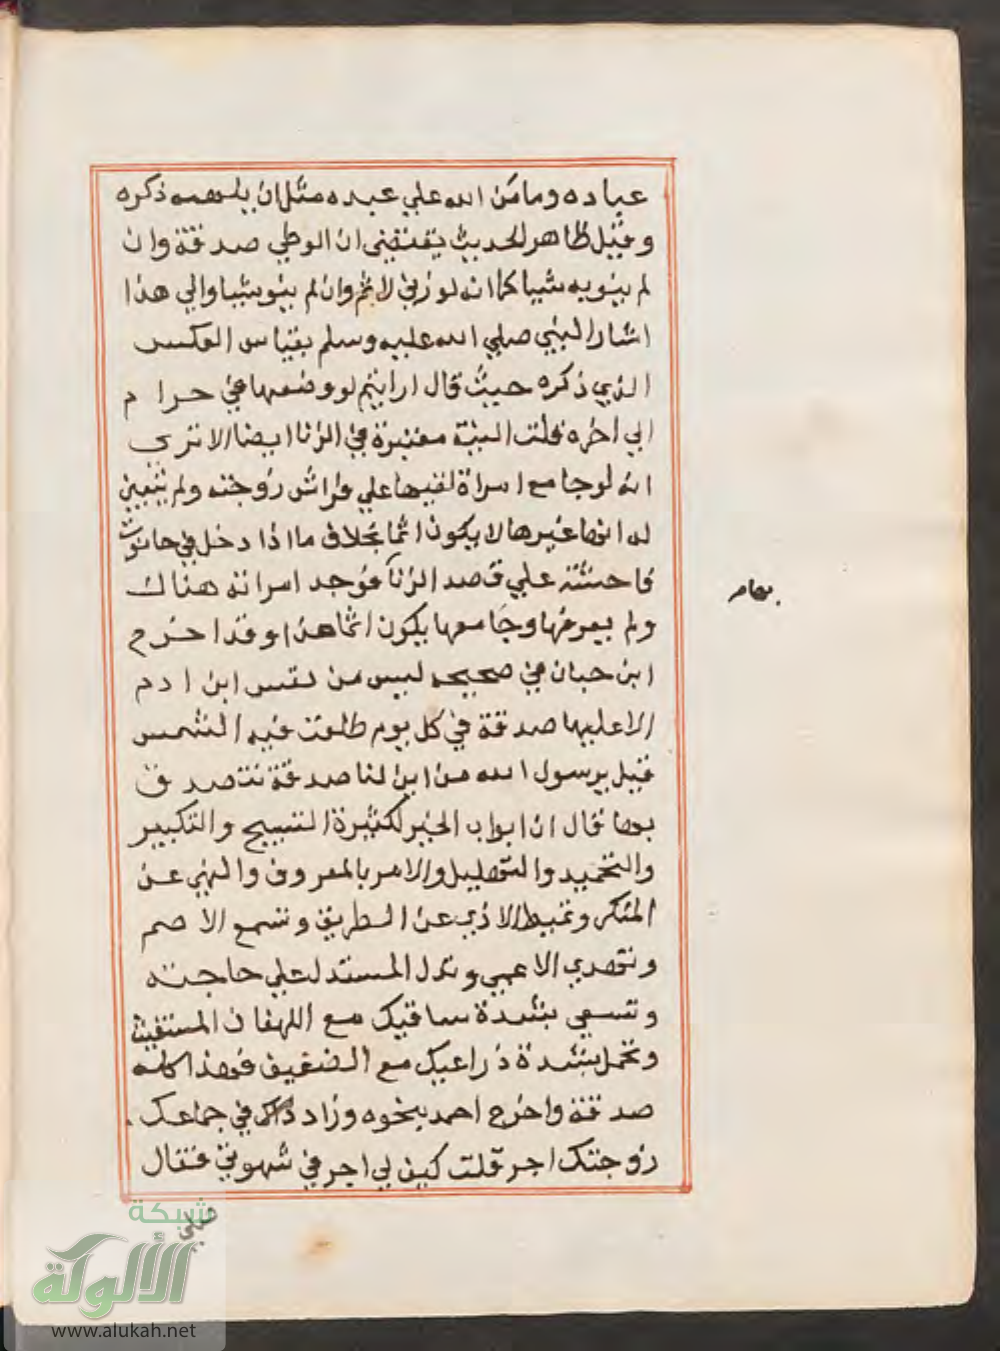 عباده وما من الله علي عبده مثل ان يلهمه ذكره
وقيل ظاهر الحديث يقتضي ان الوطي صدقة وان
لم ينويه شيا كما انه لو زني لا ثم وان لم ينو شيا والي هذا
اشار النبي صلي الله عليه وسلم بقياس العكس
الذي ذكره حيث قال ارايتم لو وضعها في حرام
الي اخره قلت النية معتبرة في الزنا ايضا الا تري
انه لو جامع امراة لقيها علي فراش زوجته ولم يتبين
له انها غيرها لا يكون اثما بخلاف ما اذا دخل في حانوت
فاحشة علي قصد الزنا فوجد امراته هناك
ولم يعرفها وجامعها يكون اثما هذا وقد اخرج
ابن حبان في صحيحه ليس من نفس ابن ادم
الا عليها صدقة في كل يوم طلعت فيه الشمس
قيل يرسول الله من اين لنا صدقة نتصدق
بها قال ان ابواب الخير لكثيرة التسبيح والتكبير
والتحميد والتهليل والامر بالمعروف والنهي عن
المنكر وتميط الاذي عن الطريق وتسمع الاصم
وتهدي الاعمي وتدل المستدل علي حاجته
وتسعي بشدة ساقيك مع اللهفان المستغيث
وتحمل بشدة ذراعيك مع الضعيف فهذا كله
صدقة واخرج احمد بنحوه وزاد ذلك في جماعك
زوجتك اجر قلت كيف لي اجر في شهوتي فقال
صلي
شبكة
الألوكة
www.alukah.net